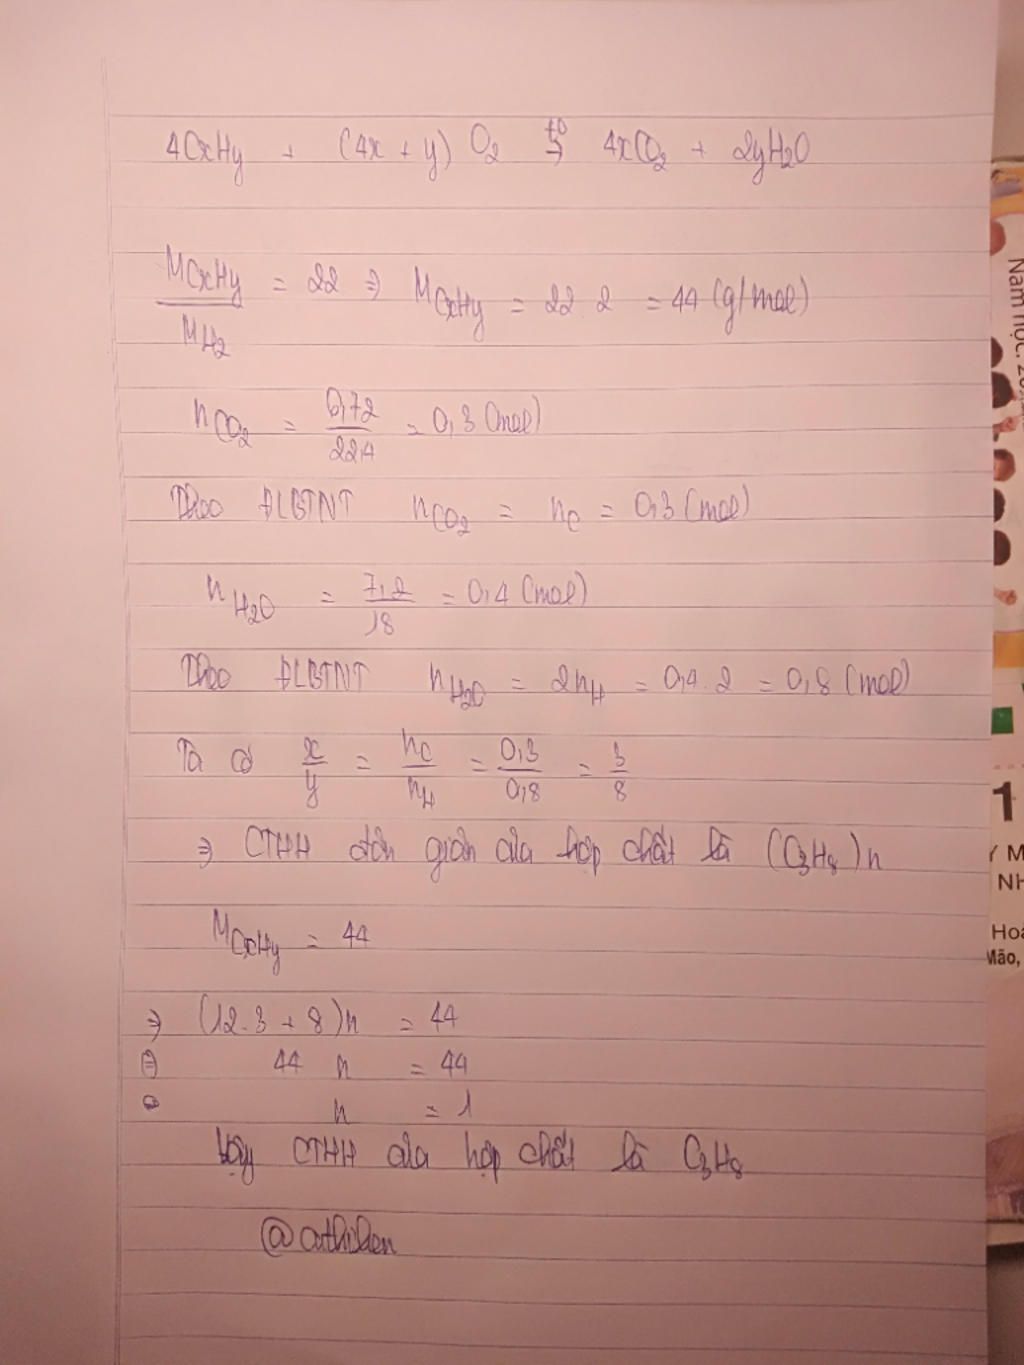 4CxHy + (4x + y) O2 t° → 4xCO2 + 2yH2O
MCxHy / MH2 = 22 ⇒ MCxHy = 22 . 2 = 44 (g/mol)
nCO2 = 6,72 / 22,4 = 0,3 (mol)
Theo ĐLBTNT nCO2 = nC = 0,3 (mol)
nH2O = 7,2 / 18 = 0,4 (mol)
Theo ĐLBTNT nH2O = 2nH = 0,4 . 2 = 0,8 (mol)
Ta có x / y = nC / nH = 0,3 / 0,8 = 3 / 8
⇒ CTHH đơn giản của hợp chất là (C3H8)n
MCxHy = 44
⇒ (12.3 + 8)n = 44
⇔ 44 n = 44
n = 1
Vậy CTHH của hợp chất là C3H8
Năm học: 20
1
Y M
NH
Hoa
Mão,